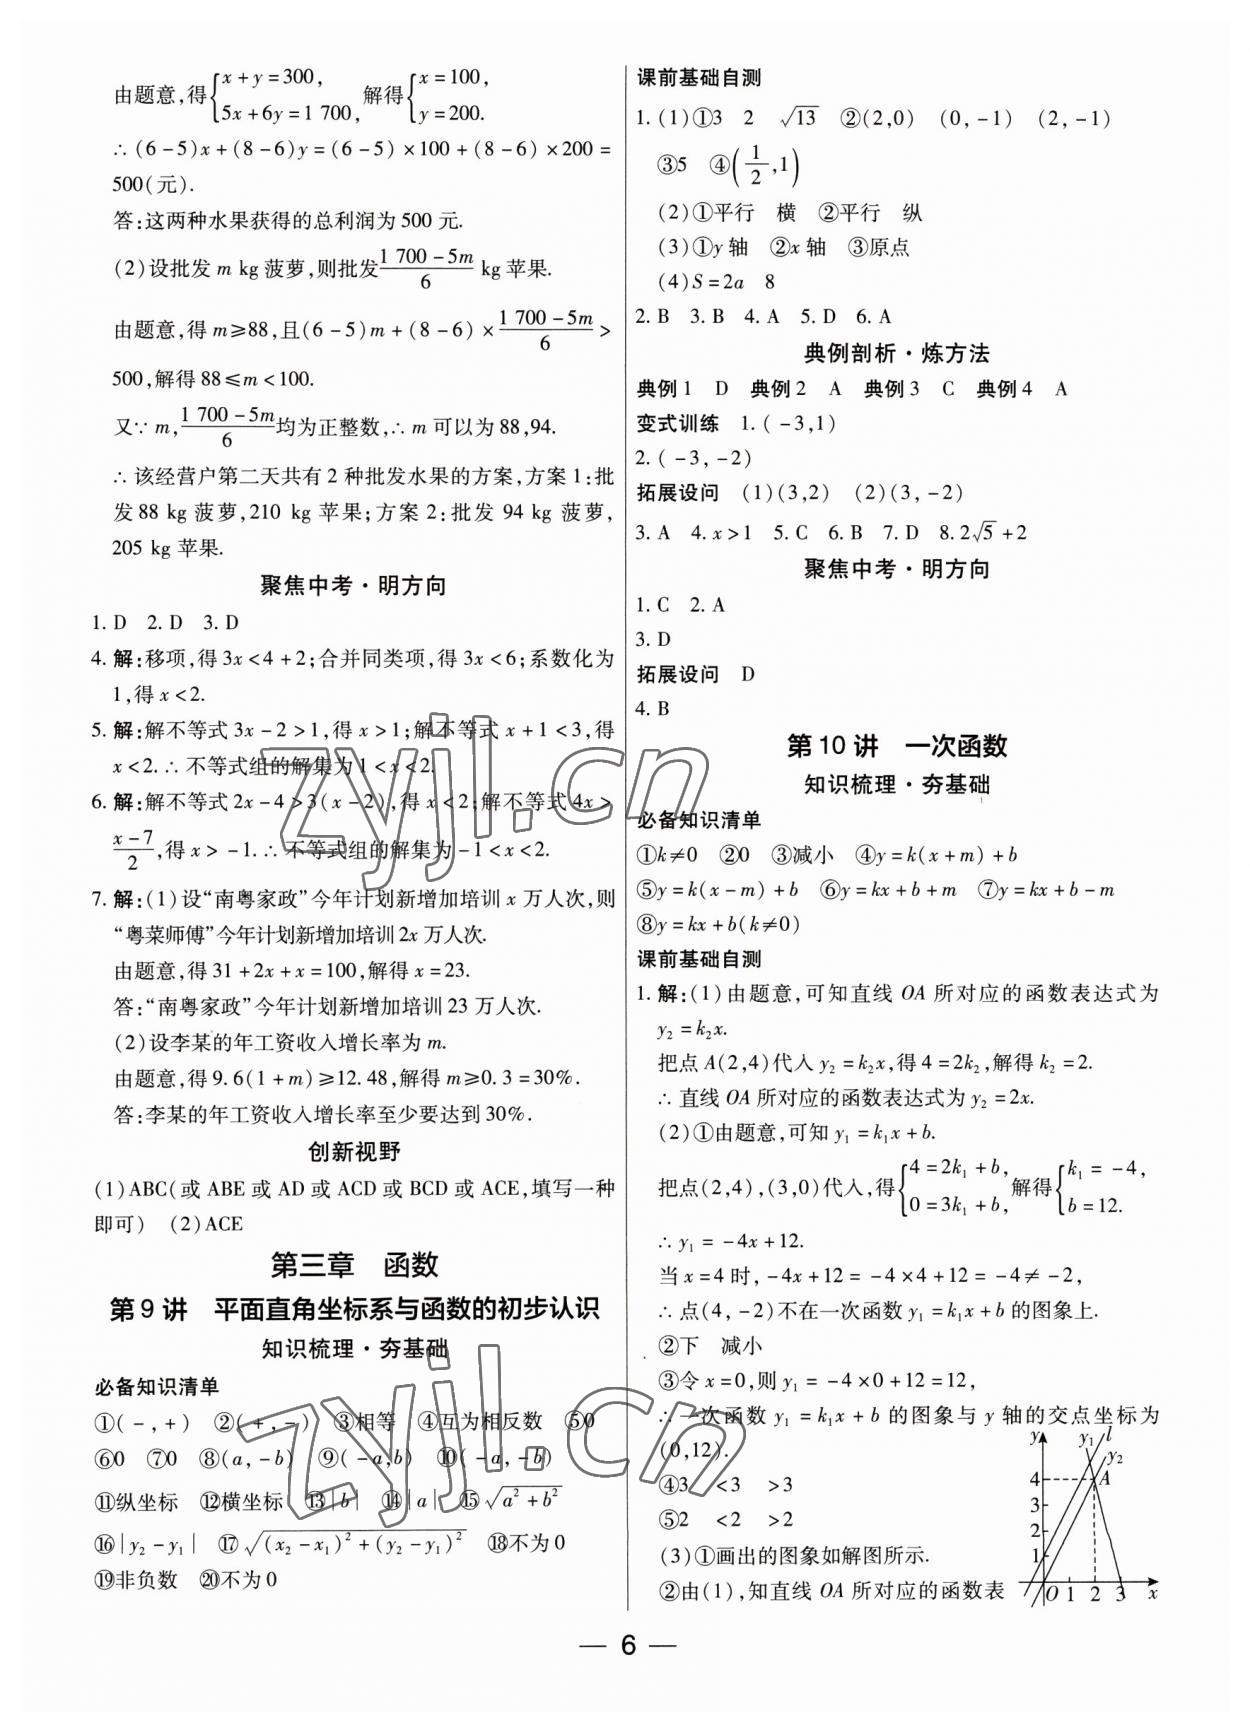 由题意,得{x+y=300, 5x+6y=1 700, 解得{x=100, y=200.
∴(6-5)x+(8-6)y=(6-5)×100+(8-6)×200=
500(元).
答:这两种水果获得的总利润为500元.
(2)设批发m kg菠萝,则批发(1 700-5m)/6 kg苹果.
由题意,得m≥88,且(6-5)m+(8-6)×(1 700-5m)/6>
500,解得88≤m<100.
又∵m,(1 700-5m)/6均为正整数,∴m可以为88,94.
∴该经营户第二天共有2种批发水果的方案,方案1:批
发88 kg菠萝,210 kg苹果;方案2:批发94 kg菠萝,
205 kg苹果.
聚焦中考·明方向
1. D 2. D 3. D
4. 解:移项,得3x<4+2;合并同类项,得3x<6;系数化为
1,得x<2.
5. 解:解不等式3x-2>1,得x>1;解不等式x+1<3,得
x<2.∴不等式组的解集为1<x<2.
6. 解:解不等式2x-4>3(x-2),得x<2;解不等式4x>
(x-7)/2,得x>-1.∴不等式组的解集为-1<x<2.
7. 解:(1)设“南粤家政”今年计划新增加培训x万人次,则
“粤菜师傅”今年计划新增加培训2x万人次.
由题意,得31+2x+x=100,解得x=23.
答:“南粤家政”今年计划新增加培训23万人次.
(2)设李某的年工资收入增长率为m.
由题意,得9.6(1+m)≥12.48,解得m≥0.3=30%.
答:李某的年工资收入增长率至少要达到30%.
创新视野
(1)ABC(或ABE或AD或ACD或BCD或ACE,填写一种
即可) (2)ACE
第三章 函数
第9讲 平面直角坐标系与函数的初步认识
知识梳理·夯基础
必备知识清单
①(-,+) ②(+,-) ③相等 ④互为相反数 ⑤0
⑥0 ⑦0 ⑧(a,-b) ⑨(-a,b) ⑩(-a,-b)
⑪纵坐标 ⑫横坐标 ⑬|b| ⑭|a| ⑮√(a²+b²)
⑯|y₂-y₁| ⑰√((x₂-x₁)²+(y₂-y₁)²) ⑱不为0
⑲非负数 ⑳不为0
课前基础自测
1. (1)①3 2 √13 ②(2,0) (0,-1) (2,-1)
③5 ④(1/2,1)
(2)①平行 横 ②平行 纵
(3)①y轴 ②x轴 ③原点
(4)S=2a 8
2. B 3. B 4. A 5. D 6. A
典例剖析·炼方法
典例1 D 典例2 A 典例3 C 典例4 A
变式训练 1. (-3,1)
2. (-3,-2)
拓展设问 (1)(3,2) (2)(3,-2)
3. A 4. x>1 5. C 6. B 7. D 8. 2√5+2
聚焦中考·明方向
1. C 2. A
3. D
拓展设问 D
4. B
第10讲 一次函数
知识梳理·夯基础
必备知识清单
①k≠0 ②0 ③减小 ④y=k(x+m)+b
⑤y=k(x-m)+b ⑥y=kx+b+m ⑦y=kx+b-m
⑧y=kx+b(k≠0)
课前基础自测
1. 解:(1)由题意,可知直线OA所对应的函数表达式为
y₂=k₂x.
把点A(2,4)代入y₂=k₂x,得4=2k₂,解得k₂=2.
∴直线OA所对应的函数表达式为y₂=2x.
(2)①由题意,可知y₁=k₁x+b.
把点(2,4),(3,0)代入,得{4=2k₁+b, 0=3k₁+b, 解得{k₁=-4, b=12.
∴y₁=-4x+12.
当x=4时,-4x+12=-4×4+12=-4≠-2,
∴点(4,-2)不在一次函数y₁=k₁x+b的图象上.
②下 减小
③令x=0,则y₁=-4×0+12=12,
∴一次函数y₁=k₁x+b的图象与y轴的交点坐标为
(0,12).
④3 <3 >3
⑤2 <2 >2
(3)①画出的图象如解图所示.
②由(1),知直线OA所对应的函数表
y y₁ l
y₂
4 A
3
2
1
O 1 2 3 x
— 6 —
zyjl.cn
zyjl.cn